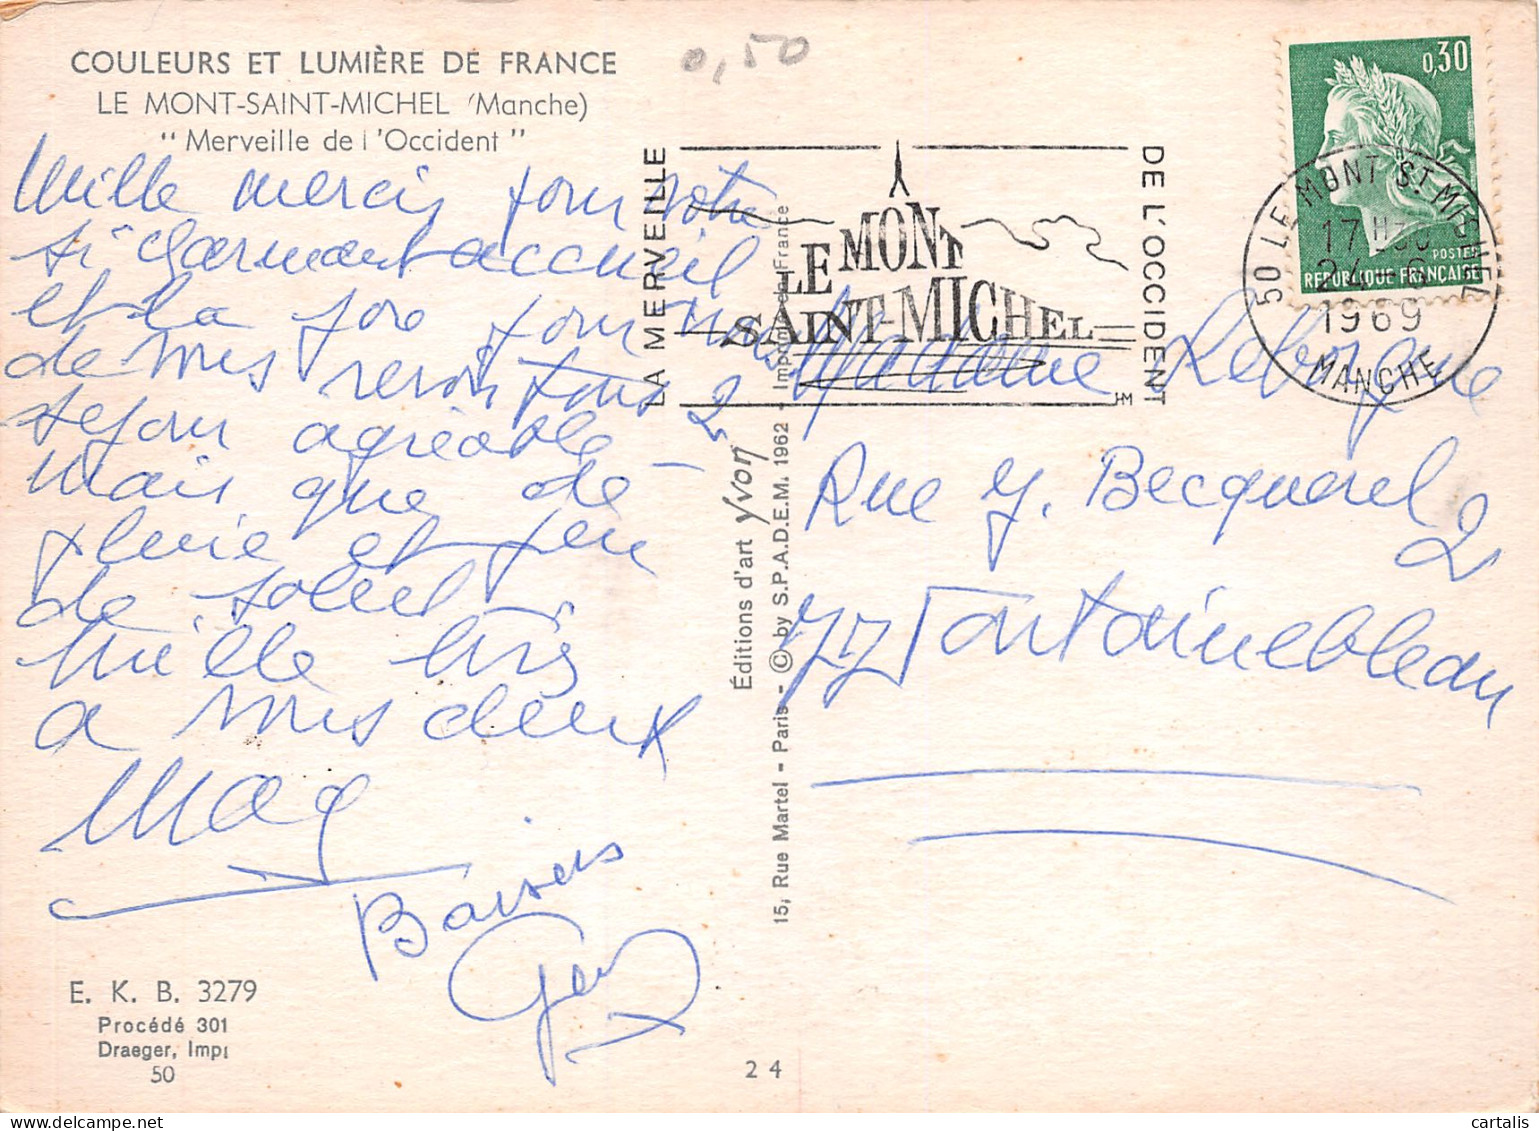 COULEURS ET LUMIÈRE DE FRANCE
LE MONT-SAINT-MICHEL (Manche)
" Merveille de l'Occident "
0,50
Mille mercis pour votre
si charmant accueil
et la joie pour nous
de vous revoir tous 2
séjour agréable —
mais que de
pluie et peu
de soleil
Mille bises
a vous deux
Mag
Baisers
E. K. B. 3279
Procédé 301
Draeger, Imp.
50
24
Éditions d'art Yvon
15, Rue Martel - Paris - © by S.P.A.D.E.M. 1962 - Imprimé en France
LA MERVEILLE
LE MONT
SAINT-MICHEL
HM
DE L'OCCIDENT
0,30
POSTES
REPUBLIQUE FRANÇAISE
50 LE MONT ST MICHEL
17 H30
24 - 6
1969
MANCHE
Madame Leborgne
Rue H. Becquerel 2
77 Fontainebleau
cartalis